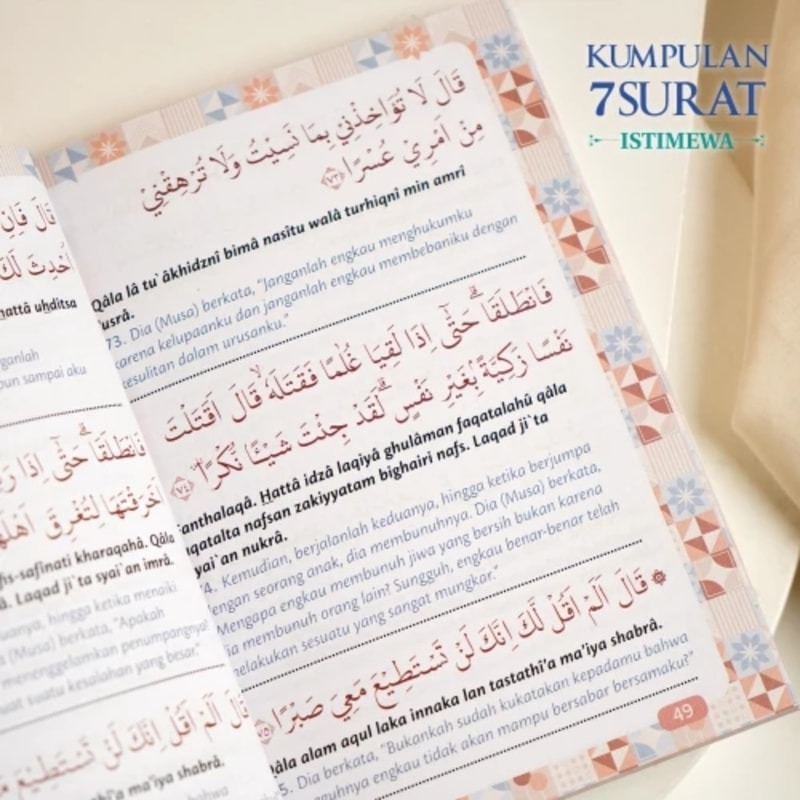 KUMPULAN
7SURAT
ISTIMEWA
قَالَ فَاِنِ
اُحْدِثَ لَكَ
hattâ uhditsa
pun sampai aku
فَانْطَلَقَاۗ حَتّٰٓى اِذَا رَ
اَخَرَقْتَهَا لِتُغْرِقَ اَهْلَهَا
fis-safînati kharaqahâ. Qâla
Laqad ji`ta syai`an imrâ.
hingga ketika menaiki
(Musa) berkata, "Apakah
menenggelamkan penumpangnya?
suatu kesalahan yang besar."
قَالَ اَلَمْ اَقُلْ اِنَّكَ لَنْ تَسْتَطِيْعَ مَعِيَ
ma'iya shabrâ.
bahwa
قَالَ لَا تُؤَاخِذْنِيْ بِمَا نَسِيْتُ وَلَا تُرْهِقْنِيْ
مِنْ اَمْرِيْ عُسْرًا ﴿٧٣﴾
Qâla lâ tu`âkhidznî bimâ nasîtu walâ turhiqnî min amrî
'usrâ.
73. Dia (Musa) berkata, "Janganlah engkau menghukumku
karena kelupaanku dan janganlah engkau membebaniku dengan
kesulitan dalam urusanku."
فَانْطَلَقَاۗ حَتّٰٓى اِذَا لَقِيَا غُلٰمًا فَقَتَلَهٗۙ قَالَ اَقَتَلْتَ
نَفْسًا زَكِيَّةً ۢبِغَيْرِ نَفْسٍۗ لَقَدْ جِئْتَ شَيْـًٔا نُّكْرًا ﴿٧٤﴾
Fanthalaqâ. Hattâ idzâ laqiyâ ghulâman faqatalahû qâla
aqatalta nafsan zakiyyatam bighairi nafs. Laqad ji`ta
syai`an nukrâ.
74. Kemudian, berjalanlah keduanya, hingga ketika berjumpa
dengan seorang anak, dia membunuhnya. Dia (Musa) berkata,
"Mengapa engkau membunuh jiwa yang bersih bukan karena
dia membunuh orang lain? Sungguh, engkau benar-benar telah
melakukan sesuatu yang sangat mungkar."
۞ قَالَ اَلَمْ اَقُلْ لَّكَ اِنَّكَ لَنْ تَسْتَطِيْعَ مَعِيَ صَبْرًا ﴿٧٥﴾
Qâla alam aqul laka innaka lan tastathî'a ma'iya shabrâ.
75. Dia berkata, "Bukankah sudah kukatakan kepadamu bahwa
sungguhnya engkau tidak akan mampu bersabar bersamaku?"
49